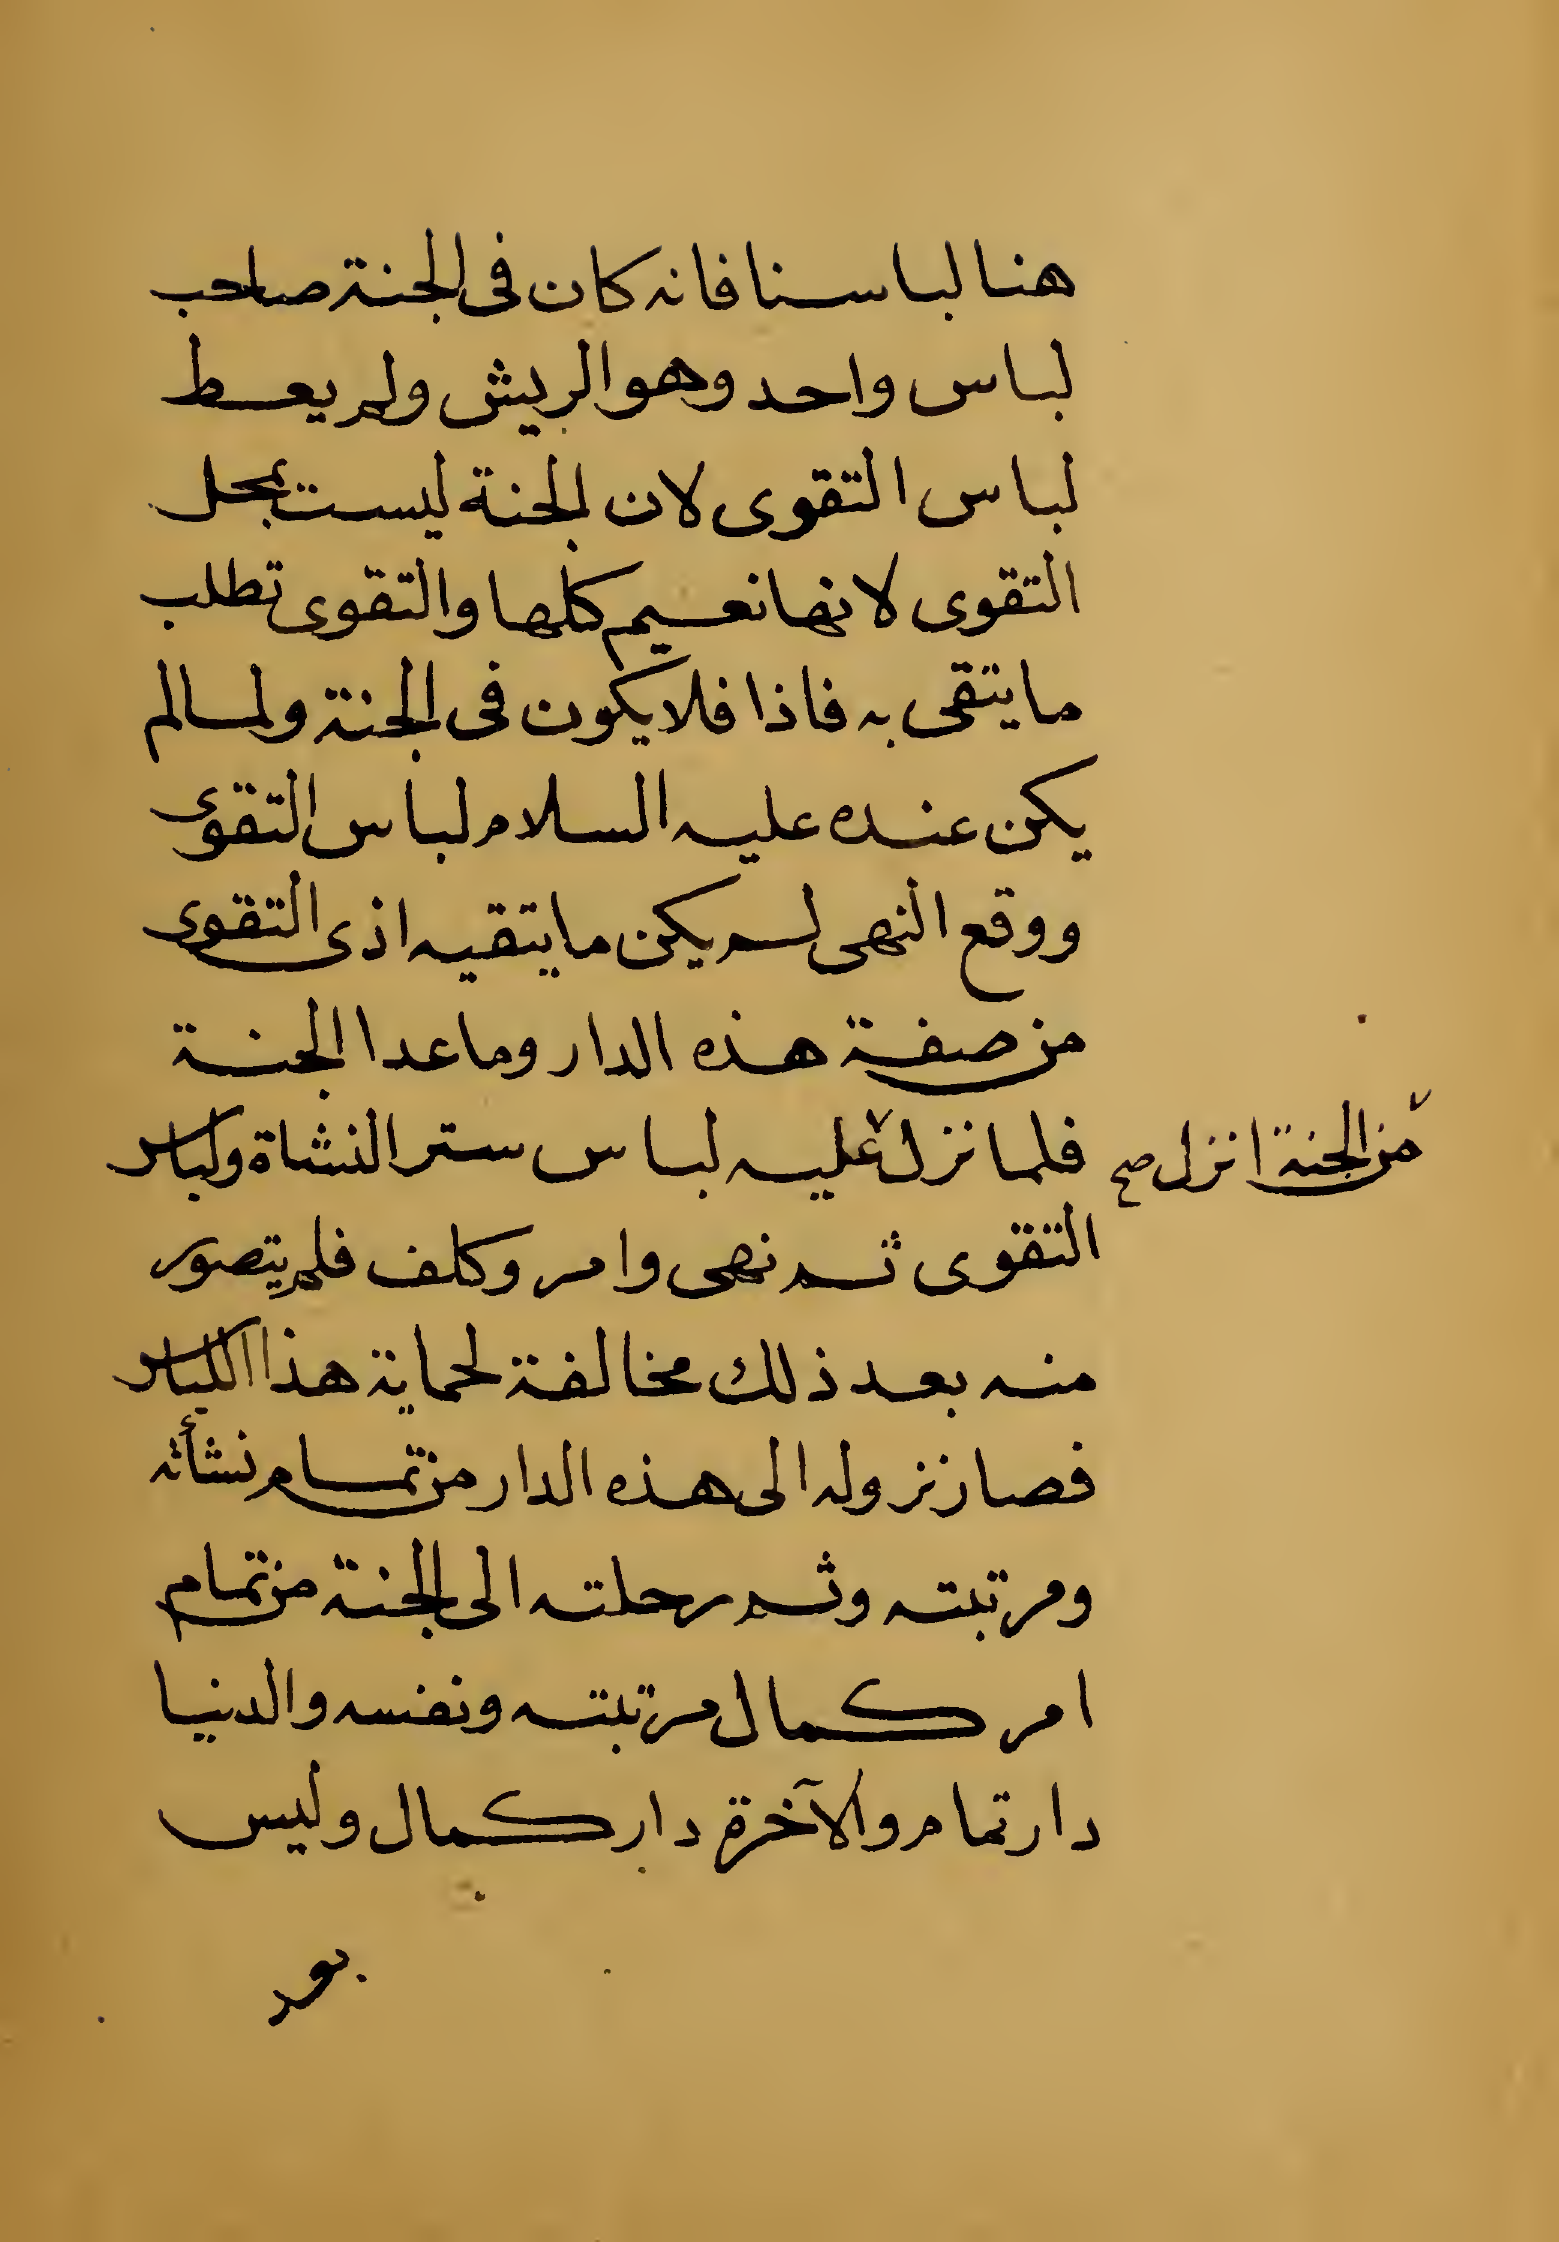 هنا لباسنا فانه كان فى الجنة صاحب
لباس واحد وهو الريش ولم يعط
لباس التقوى لان الجنة ليست بمحل
التقوى لانها نعيم كلها والتقوى تطلب
ما يتقى به فاذا فلا يكون فى الجنة ولما لم
يكن عنده عليه السلام لباس التقوى
ووقع النهى لم يكن ما يتقيه اذى التقوى
من صفة هذه الدار وما عدا الجنة
فلما نزل عليه لباس ستر النشاة ولباس
من الجنة انزل صح
التقوى ثم نهى وامر وكلف فلم يتصور
منه بعد ذلك مخالفة لحماية هذا اللباس
فصار نزوله الى هذه الدار من تمام نشأته
ومرتبته وثم رحلته الى الجنة من تمام
امر كمال مرتبته ونفسه والدنيا
دار تمام والآخرة دار كمال وليس